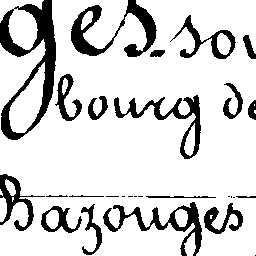 ges-sou
bourg de
Bazouges